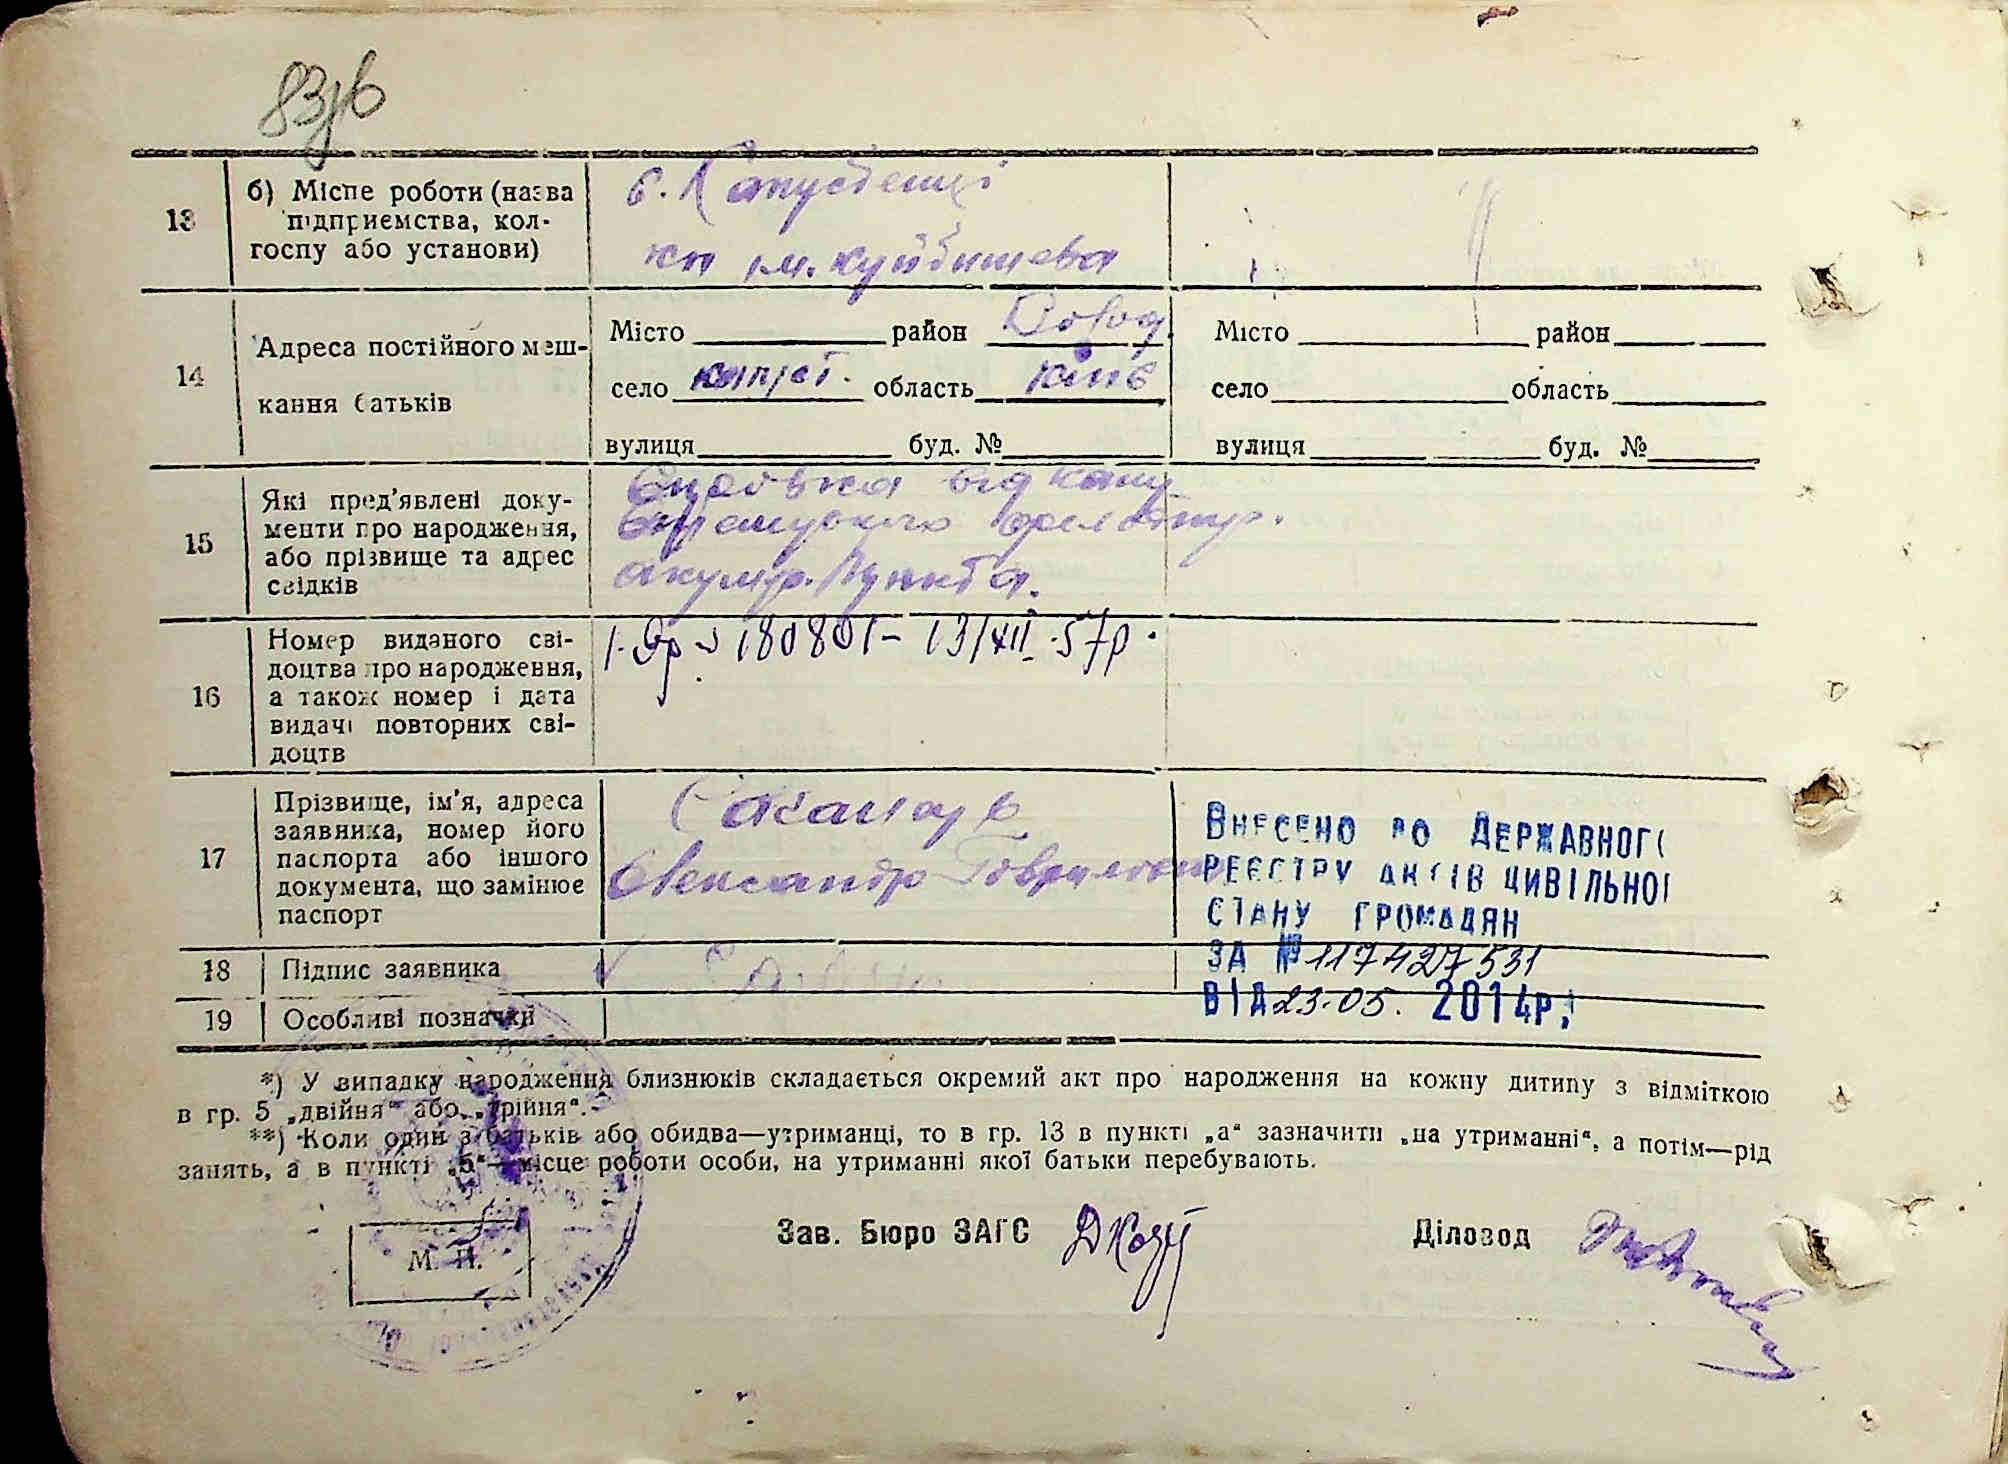 83зв
13 б) Місце роботи (назва підприємства, колгоспу або установи)
с. Капустенці
кп ім. Куйбишева
14 Адреса постійного мешкання батьків
Місто район
село Капуст. область Київ
вулиця буд. №
Місто район
село область
вулиця буд. №
15 Які пред'явлені документи про народження, або прізвище та адрес свідків
від
акушер. Пункта.
16 Номер виданого свідоцтва про народження, а також номер і дата видачі повторних свідоцтв
180801 - 13/XII-57р.
17 Прізвище, ім'я, адреса заявника, номер його паспорта або іншого документа, що замінює паспорт
Олександр
ВНЕСЕНО ДО ДЕРЖАВНОГО
РЕЄСТРУ АКТІВ ЦИВІЛЬНОГО
СТАНУ ГРОМАДЯН
ЗА № 117427531
ВІД 23.05. 2014р.
18 Підпис заявника
19 Особливі позначки
*) У випадку народження близнюків складається окремий акт про народження на кожну дитину з відміткою
в гр. 5 „двійня“ або „трійня“.
**) Коли один з батьків або обидва—утриманці, то в гр. 13 в пункті „а“ зазначити „на утриманні“, а потім—рід
занять, а в пункті „б“—місце роботи особи, на утриманні якої батьки перебувають.
М. П.
Зав. Бюро ЗАГС
Діловод